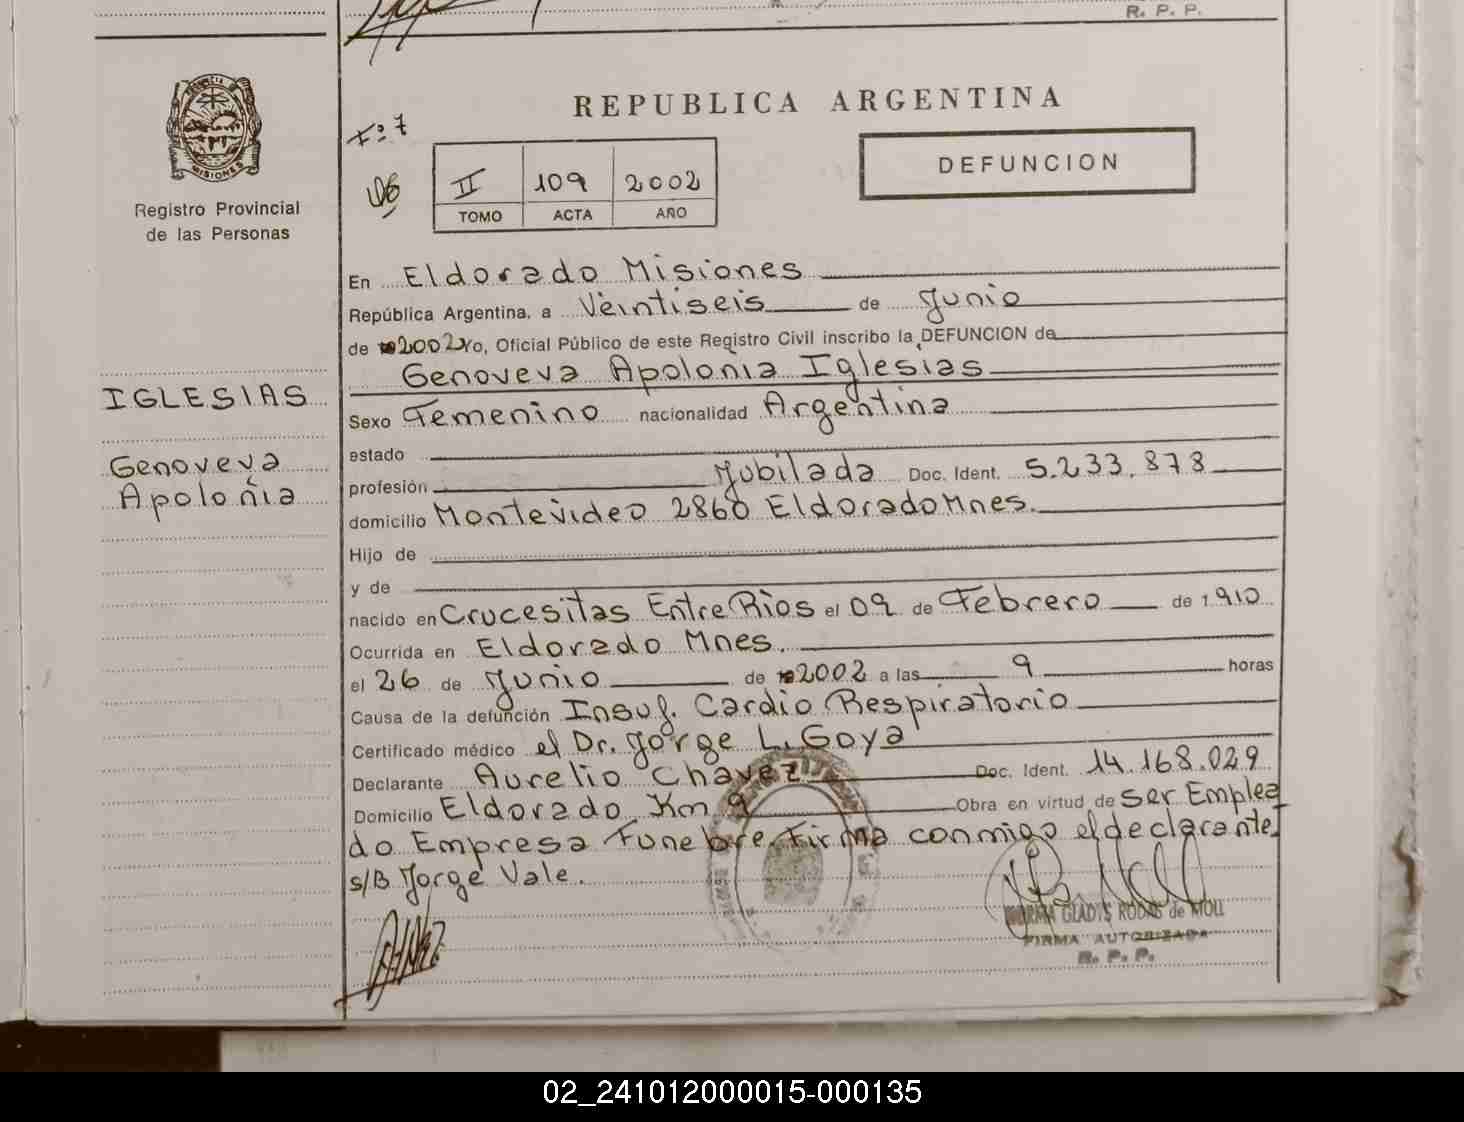 R. P. P.
PROVINCIA DE
MISIONES
Registro Provincial
de las Personas
IGLESIAS
Genoveva
Apolonia
REPUBLICA ARGENTINA
Fº 7
DEFUNCION
II 109 2002
TOMO ACTA AÑO
En Eldorado Misiones
República Argentina, a Veintiseis de Junio
de 2002 Yo, Oficial Público de este Registro Civil inscribo la DEFUNCION de
Genoveva Apolonia Iglesias
Sexo Femenino nacionalidad Argentina
estado
profesión Jubilada Doc. Ident. 5.233.878
domicilio Montevideo 2860 Eldorado Mnes.
Hijo de
y de
nacido en Crucesitas Entre Rios el 09 de Febrero de 1.910
Ocurrida en Eldorado Mnes.
el 26 de Junio de 2002 a las 9 horas
Causa de la defunción Insuf. Cardio Respiratorio
Certificado médico el Dr. Jorge L. Goya
Declarante Aurelio Chavez Doc. Ident. 14.168.029
Domicilio Eldorado Km 9 Obra en virtud de ser Emplea
do Empresa Funebre. Firma conmigo el declarante
s/B Jorge Vale.
NORMA GLADYS RODAS de MOLL
FIRMA AUTORIZADA
R. P. P.
02_241012000015-000135